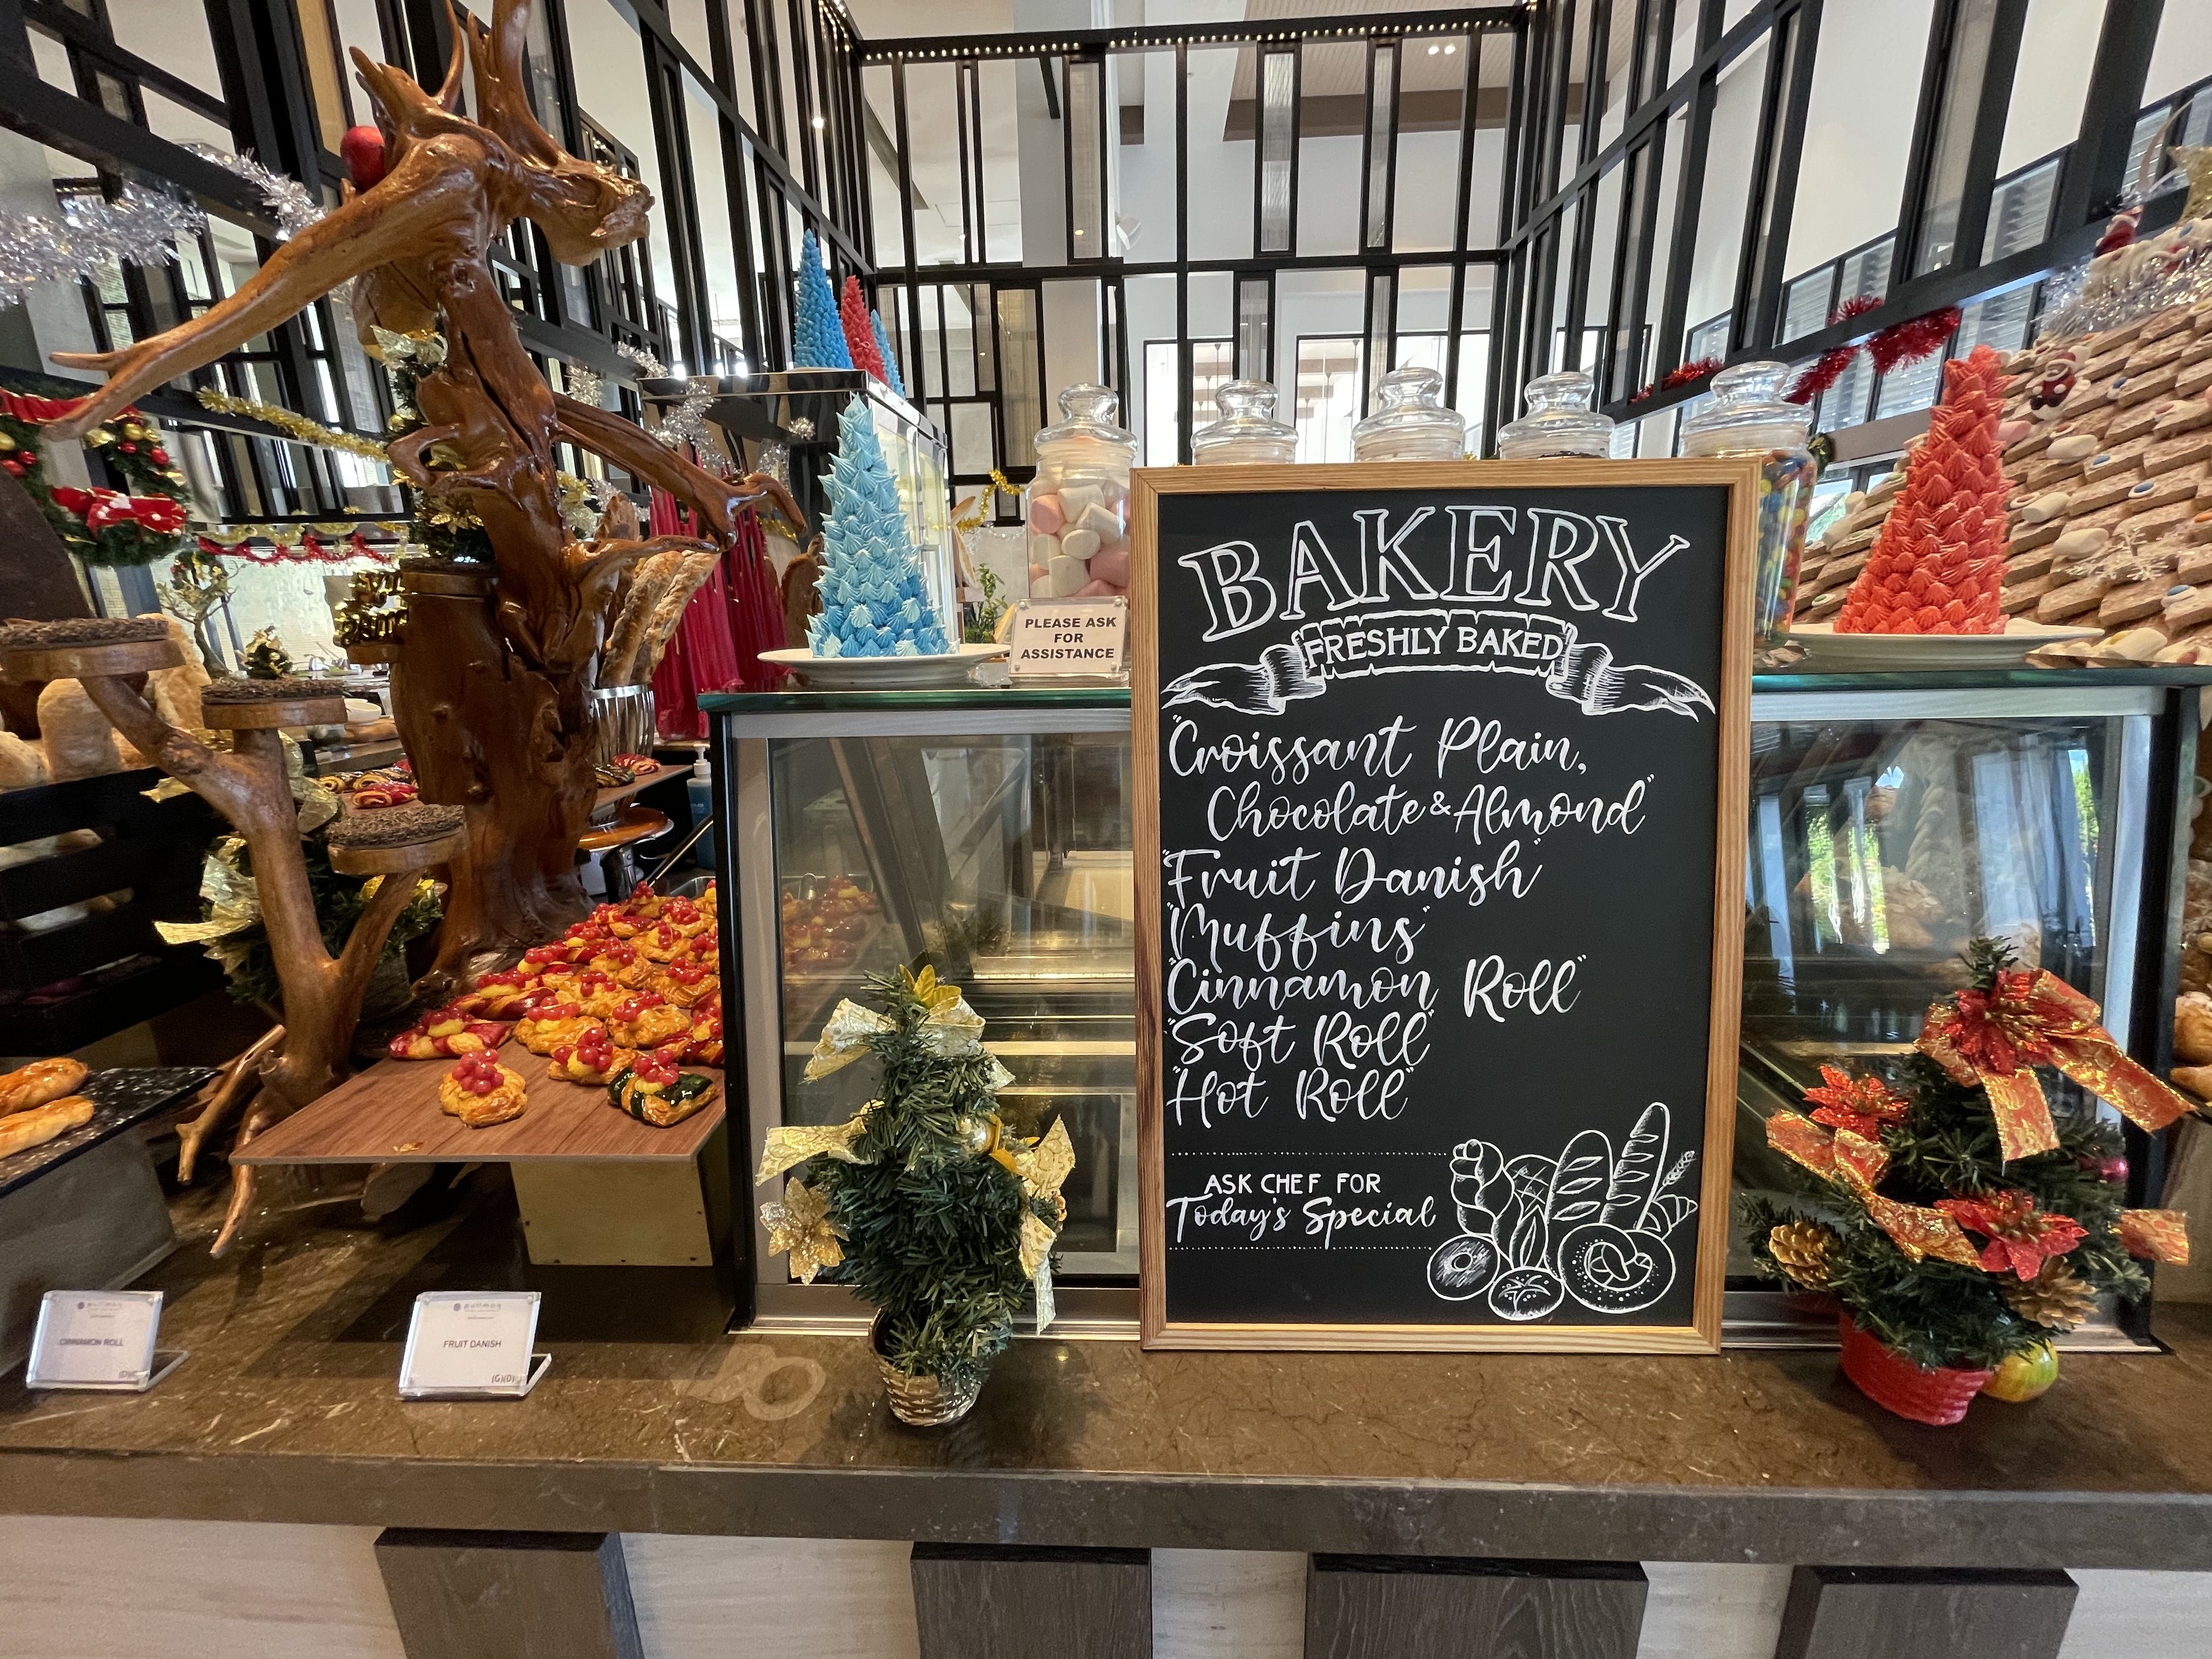 BAKERY
FRESHLY BAKED
"Croissant Plain,
Chocolate & Almond"
"Fruit Danish"
"Muffins"
"Cinnamon Roll"
"Soft Roll"
"Hot Roll"
ASK CHEF FOR
Today's Special
PLEASE ASK
FOR
ASSISTANCE
pullman
CINNAMON ROLL
pullman
FRUIT DANISH
(G)(D)